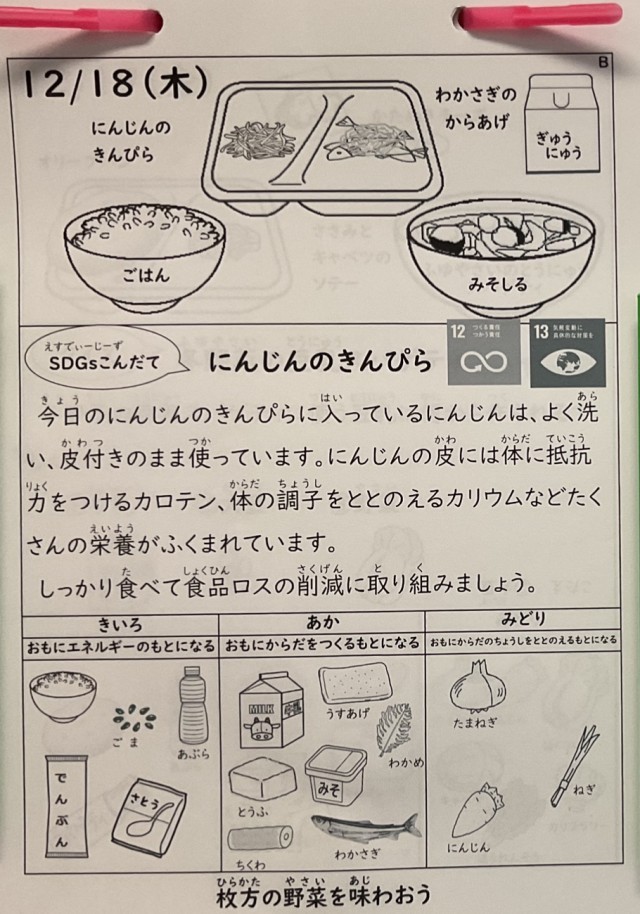 B
12/18(木)
にんじんの
きんぴら
わかさぎの
からあげ
ぎゅう
にゅう
ごはん
みそしる
えすでぃーじーず
SDGsこんだて
にんじんのきんぴら
12 つくる責任
つかう責任
13 気候変動に
具体的な対策を
きょう はい あら
今日のにんじんのきんぴらに入っているにんじんは、よく洗
かわつ つか かわ からだ ていこう
い、皮付きのまま使っています。にんじんの皮には体に抵抗
りょく からだ ちょうし
力をつけるカロテン、体の調子をととのえるカリウムなどたく
えいよう
さんの栄養がふくまれています。
た しょくひん さくげん と く
しっかり食べて食品ロスの削減に取り組みましょう。
きいろ
おもにエネルギーのもとになる
ごま
あぶら
でんぷん
さとう
あか
おもにからだをつくるもとになる
MILK
うすあげ
わかめ
とうふ
みそ
ちくわ
わかさぎ
みどり
おもにからだのちょうしをととのえるもとになる
たまねぎ
ねぎ
にんじん
ひらかた やさい あじ
枚方の野菜を味わおう